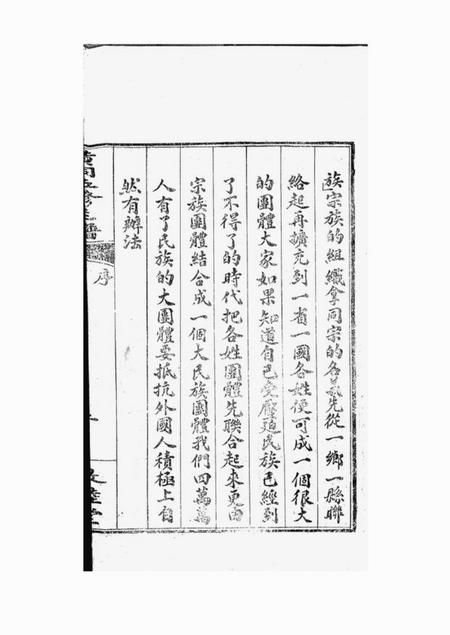 族宗族的組織拿同宗的名義先從一鄉一縣聯
絡起再擴充到一省一國各姓便可成一個很大
的團體大家如果知道自己受壓迫民族已經到
了不得了的時代把各姓團體先聯合起來更由
宗族團體結合成一個大民族團體我們四萬萬
人有了民族的大團體要抵抗外國人積極上自
然有辦法
序